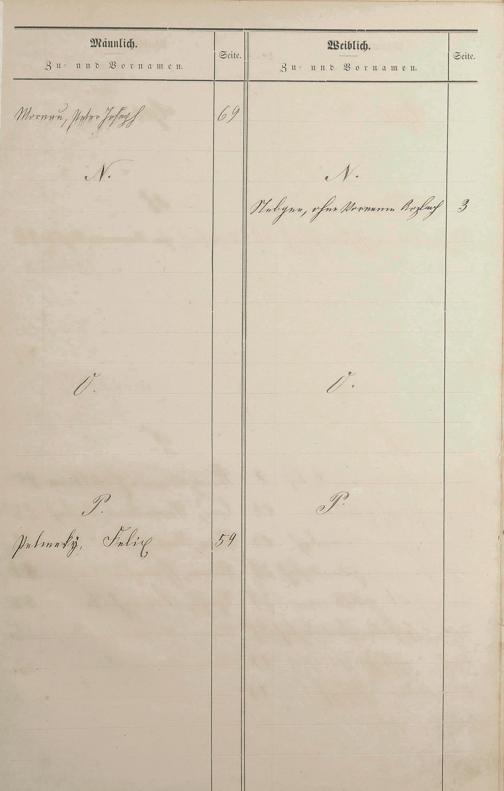 Männlich.
Zu- und Vornamen.
Seite.
Weiblich.
Zu- und Vornamen.
Seite.
Peter Joseph 69
N.
N.
ohne Vornamen 3
O.
O.
P.
P.
Felix 59